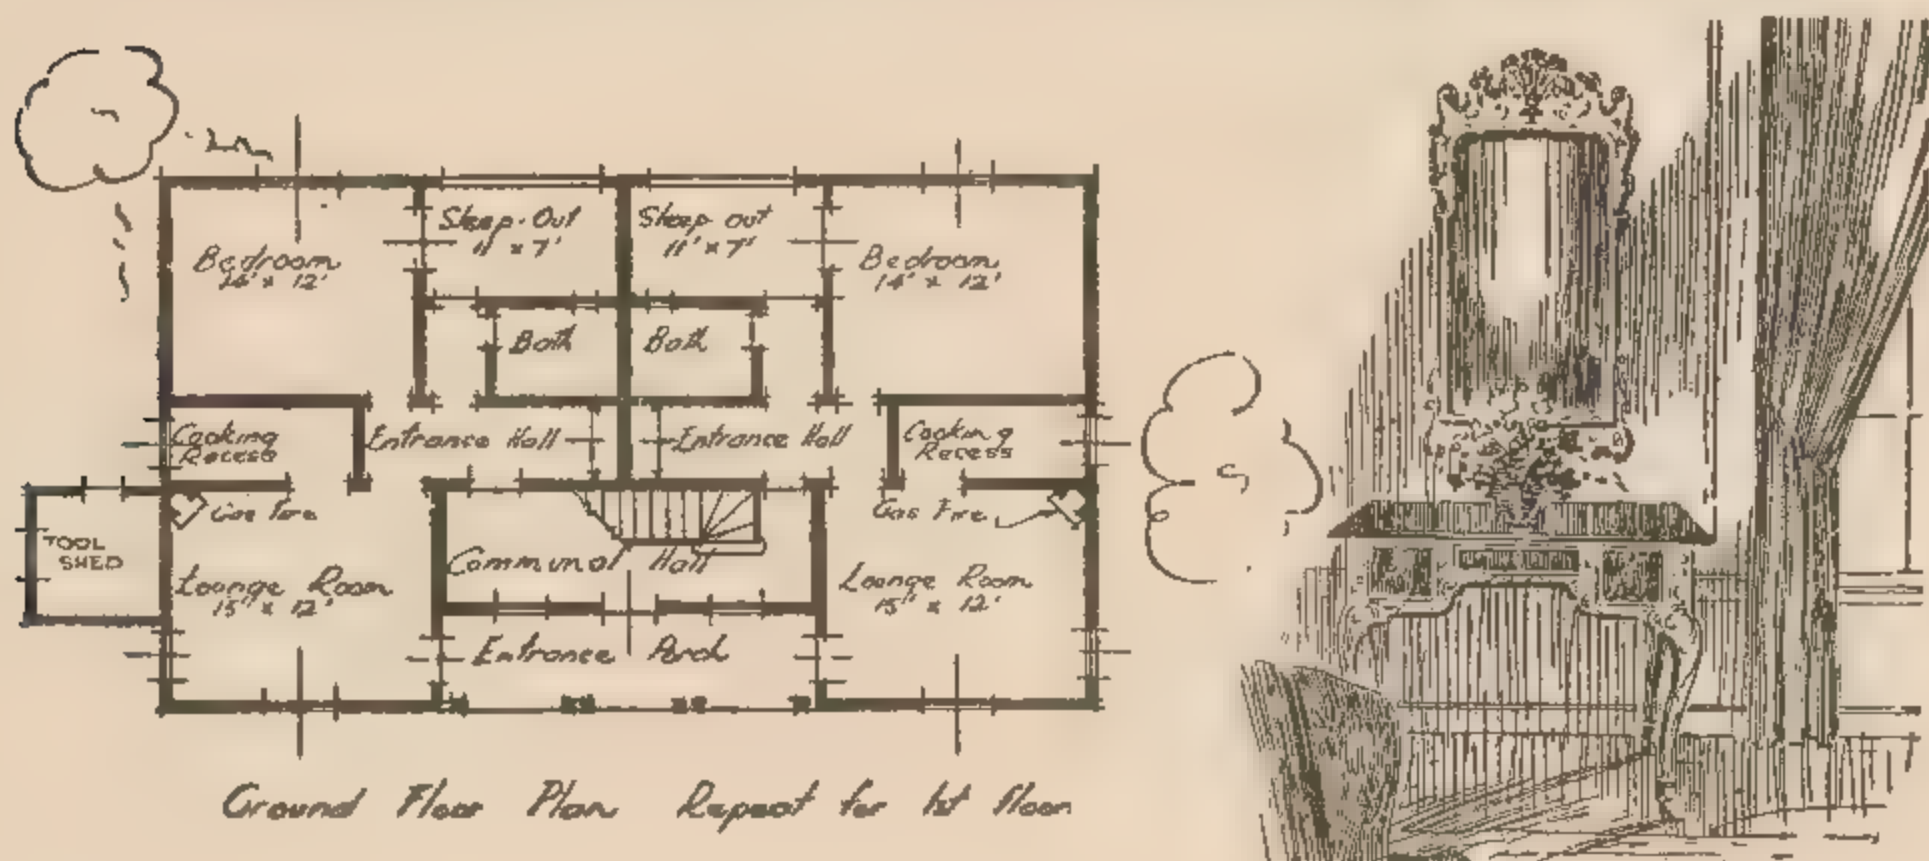 Sleep-Out
11' x 7'
Sleep out
11' x 7'
Bedroom
14' x 12'
Bedroom
14' x 12'
Bath
Bath
Cooking
Recess
Entrance Hall
Entrance Hall
Cooking
Recess
Gas Fire
Gas Fire
TOOL
SHED
Communal Hall
Lounge Room
15' x 12'
Lounge Room
15' x 12'
Entrance Porch
Ground Floor Plan Repeat for 1st floor